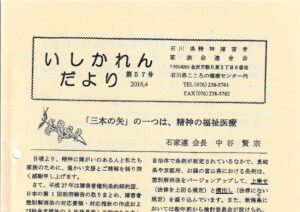 いしかれん
だより
第57号
2015,4
石川県精神障害者
家族会連合会
石川県こころの健康センター内
TEL (076) 238-5761
FAX (076) 238-5762
「三本の矢」の一つは、精神の福祉医療
石家連 会長 中谷 賢宗
日頃より、精神に障がいのある人と私たち
家族のために、温かい支援とご理解を賜り厚
く感謝申し上げます。
さて、平成27年は障害者権利条約締約国、
日本の第1回政府報告の取りまとめ、障害者
差別解消法の対応要領・対応指針の作成およ
自治体で条例が制定されているなかで、長崎
県や京都府、お隣の富山県における条例は、
差別解消法をバージョンアップして、上乗せ
（法律を上回る規定）と横出し（法律にない
規定）を盛り込んでいます。また、新潟県に
おいては数年前から権利委員会が設けられ、